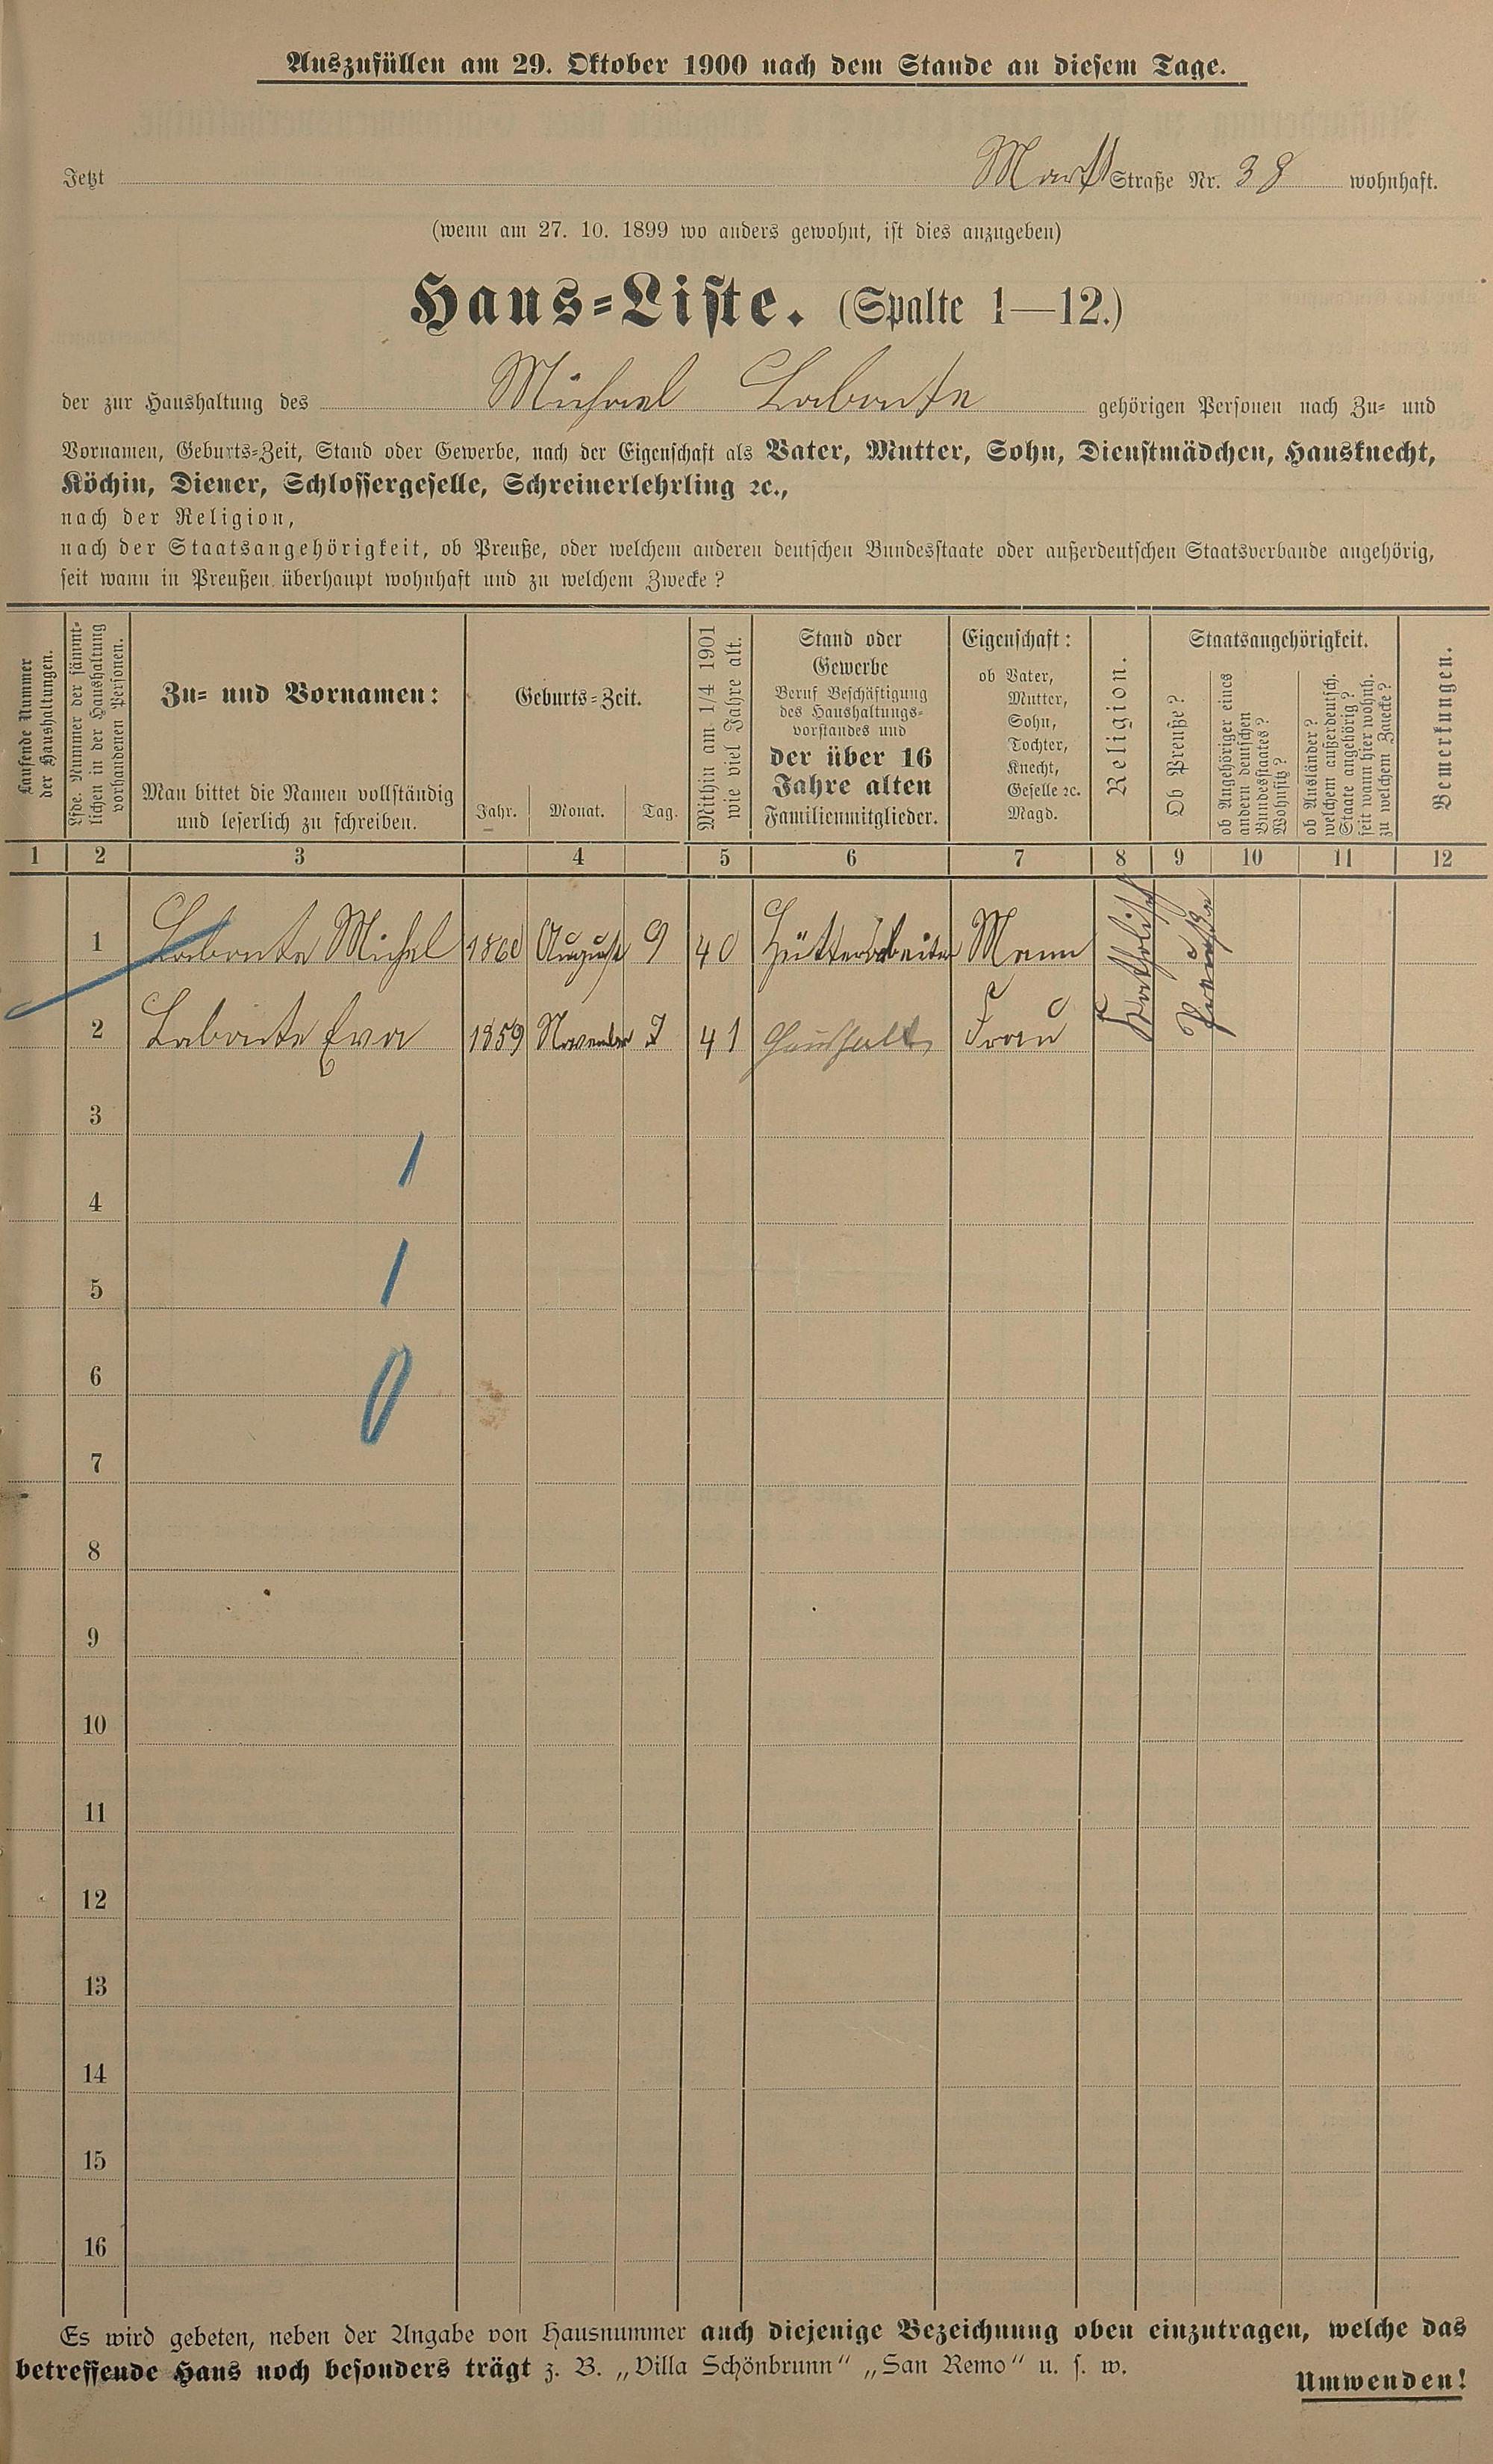 Auszufüllen am 29. Oktober 1900 nach dem Stande an diesem Tage.
Jetzt Markt Straße Nr. 38 wohnhaft.
(wenn am 27. 10. 1899 wo anders gewohnt, ist dies anzugeben)
Haus-Liste. (Spalte 1—12.)
der zur Haushaltung des Michael Labonte gehörigen Personen nach Zu- und
Vornamen, Geburts-Zeit, Stand oder Gewerbe, nach der Eigenschaft als Vater, Mutter, Sohn, Dienstmädchen, Hausknecht,
Köchin, Diener, Schlossergeselle, Schreinerlehrling ꝛc.,
nach der Religion,
nach der Staatsangehörigkeit, ob Preuße, oder welchem anderen deutschen Bundesstaate oder außerdeutschen Staatsverbande angehörig,
seit wann in Preußen überhaupt wohnhaft und zu welchem Zwecke?
Laufende Nummer
der Haushaltungen.
Lfde. Nummer der sämmt-
lichen in der Haushaltung
vorhandenen Personen.
Zu- und Vornamen:
Man bittet die Namen vollständig
und leserlich zu schreiben.
Geburts-Zeit.
Jahr. Monat. Tag.
Mithin am 1/4 1901
wie viel Jahre alt.
Stand oder
Gewerbe
Beruf Beschäftigung
des Haushaltungs-
vorstandes und
der über 16
Jahre alten
Familienmitglieder.
Eigenschaft:
ob Vater,
Mutter,
Sohn,
Tochter,
Knecht,
Geselle ꝛc.
Magd.
Religion.
Staatsangehörigkeit.
Ob Preuße?
ob Angehöriger eines
andern deutschen
Bundesstaates?
Wohnsitz?
ob Ausländer?
welchem außerdeutsch.
Staate angehörig?
seit wann hier wohnh.
zu welchem Zwecke?
Bemerkungen.
1 2 3 4 5 6 7 8 9 10 11 12
1 Labonte Michel 1860 August 9 40 Hüttenarbeiter Mann Katholisch Preuße
2 Labonte Eva 1859 November 7 41 Haushalt Frau
3
4
5
6
7
8
9
10
11
12
13
14
15
16
1
1
0
Es wird gebeten, neben der Angabe von Hausnummer auch diejenige Bezeichnung oben einzutragen, welche das
betreffende Haus noch besonders trägt z. B. „Villa Schönbrunn“ „San Remo“ u. s. w.
Umwenden!